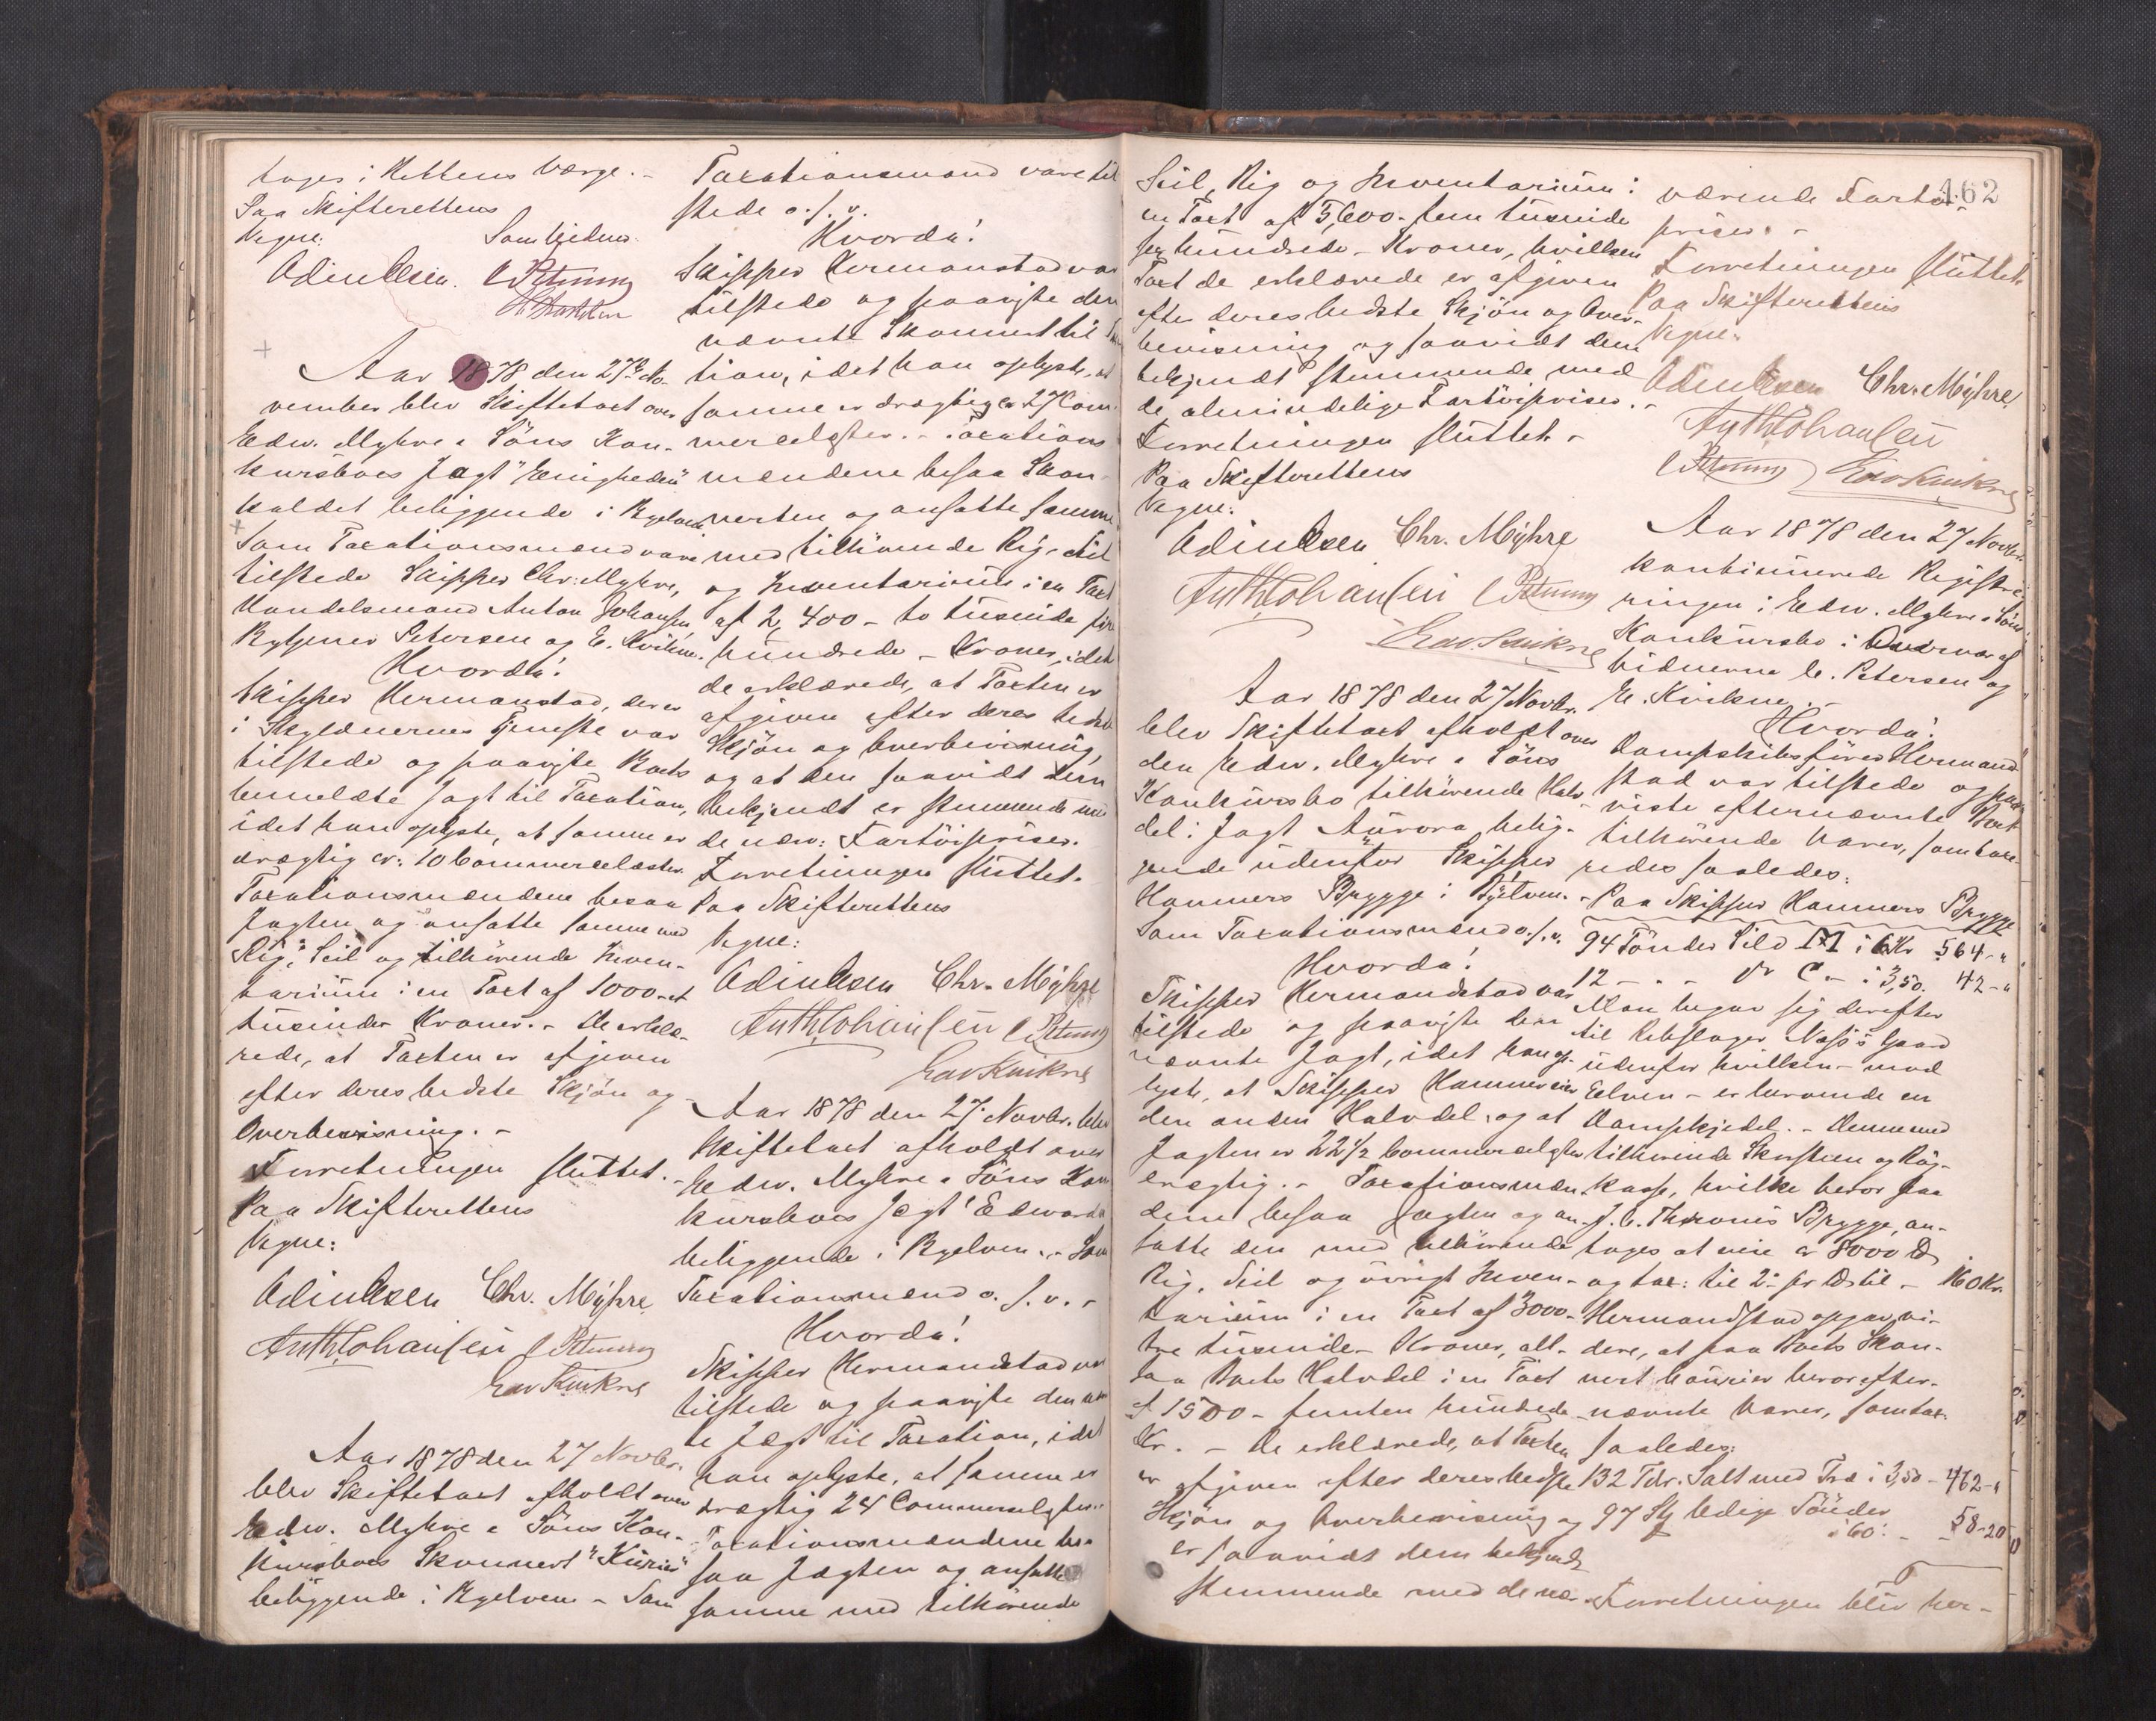 tages i Rettens Værge. -
Paa Skifterettens
Vegne:
Som Vidner.
Odin Olsen. C Petersen
Aar 1878 den 27de No-
vember blev Skiftetaxt over
Edw. Myhre & Söns Kon-
kursboes Jagt "Enigheden"
kaldet beliggende i Byelven
Som Taxationsmænd vare
tilstede Skipper Chr. Myhre,
Handelsmand Anton Johansen
Rebslager Petersen og E. Kvikne.
Hvorda!
Skipper Hermanstad, der er
i Skyldnernes Tjeneste var
tilstede og paaviste Boets
bemeldte Jagt til Taxation,
idet han oplyste, at samme er
drægtig ca: 10 Commercelæster.
Taxationsmændene besaa
Jagten og ansatte samme med
Rig, Seil og tilhörende Inven-
tarium i en Taxt af 1000 - et
tusinde Kroner. - De erklæ-
rede, at Taxten er afgiven
efter deres bedste Skjön og
Overbevisning. -
Forretningen sluttet. -
Paa Skifterettens
Vegne:
Odin Olsen Chr. Myhre
Anth Johansen C Petersen
Edv Kvikne
Aar 1878 den 27 Novbr.
blev Skiftetaxt afholdt over
Edw. Myhre & Söns Kon-
kursboes Skonnert "Kurier"
beliggende i Byelven - Som
Taxationsmænd vare til
stede o. s. v.
Hvorda!
Skipper Hermanstad var
tilstede og paaviste den
nævnte Skonnert til Taxa
tion, idet han oplyste, at
samme er drægtig ca 27 Com-
mercelæster. - Taxations
mændene besaa Skon-
nerten og ansatte samme
med tilhörende Rig, Seil
og Inventarium i en Taxt
af 2,400 - to tusinde fire
hundrede - Kroner, idet
de erklærede, at Taxten er
afgiven efter deres bedste
Skjön og Overbevisning,
og at den saavidt dem
bekjendt er stemmende med
de nærv: Fartöispriser.
Forretningen sluttet.
Paa Skifterettens
Vegne:
Odin Olsen Chr. Myhre
Anth Johansen C Petersen
Edv Kvikne
Aar 1878 den 27. Novbr. blev
Skiftetaxt afholdt over
Edw. Myhre & Söns Kon
kursboes Jægt "Edvarda
beliggende i Byelven. - Som
Taxationsmænd o. s. v. -
Hvorda!
Skipper Hermandstad var
tilstede og paaviste den nævn
te Jægt til Taxation, idet
han oplyste, at samme er
drægtig 24 Commercelæster.
Taxationsmændene be-
saa Jægten og ansatte
samme med tilhörende
Seil, Rig og Inventarium i
en Taxt af 5,600 - fem tusinde
sex hundrede - Kroner, hvilken
Taxt de erklærede er afgiven
efter deres bedste Skjön og Over-
bevisning og saavidt dem
bekjendt stemmende med
de almindelige Fartöispriser. -
Forretningen sluttet. -
Paa Skifterettens
Vegne:
Odin Olsen Chr. Myhre
Anth Johansen C Petersen
Edv. Kvikne
Aar 1878 den 27 Novbr.
blev Skiftetaxt afholdt over
den Edw. Myhre & Söns
Konkursbo tilhörende Halv-
del i Jagt Aurora, belig-
gende udenfor Skipper
Hammers Brygge i Byelven. -
Som Taxationsmænd o. s. v.
Hvorda!
Skipper Hermandstad var
tilstede og paaviste den
nævnte Jagt, idet han op-
lyste, at Skipper Hammer eier
den anden Halvdel, og at
Jagten er 22 1/2 Commercelæster
drægtig. - Taxationsmæn-
dene besaa Jagten og an-
satte den med tilhörende
Rig, Seil og övrigt Inven-
tarium i en Taxt af 3000 -
tre tusinde - Kroner, alt-
saa Boets Halvdel i en Taxt
af 1500 - femten hundrede
Kr. - De erklærede, at Taxten
er afgiven efter deres bedste
Skjön og Overbevisning og
er saavidt dem bekjendt
stemmende med de nær-
162
værende Fartöi-
priser. -
Forretningen sluttet.
Paa Skifterettens
Vegne.
Odin Olsen Chr. Myhre
Anth Johansen
C Petersen Edv Kvikne
Aar 1878 den 27 Novbr.
kontinuerede Registre-
ringen i Edw. Myhre & Söns
Konkursbo i Overvær af
Vidnerne C. Petersen og
E. Kvikne. -
Hvorda!
Dampskibsförer Hermand-
stad var tilstede og paa-
viste efternævnte Boet
tilhörende Varer, som taxe-
redes saaledes:
Paa Skipper Hammers Brygge
94 Tönder Sild M i 6 Kr 564 - "
12 - " - C - i 3,50. 42 - "
Man begav sig derefter
til Rebslager Nass's Gaard
udenfor hvilken - mod
Eelven - er beroende en
Dampkjedel. - Denne med
tilhörende Skorsteen og Rög-
kasse, hvilke beror paa
J. C. Thrones Brygge, an-
tages at veie ca 8000 ℔
og tax: til 2 - pr ℔ til - 160 Kr.
Hermandstad opgav vi-
dere, at paa Boets Skon-
nert Courier beror efter-
nævnte Varer, som tax.
saaledes:
132 Tdr. Salt med Træ i 3,50 - 462 - "
97 Stk ledige Tönder
i 60. - 58 - 20
Forretningen blev her-